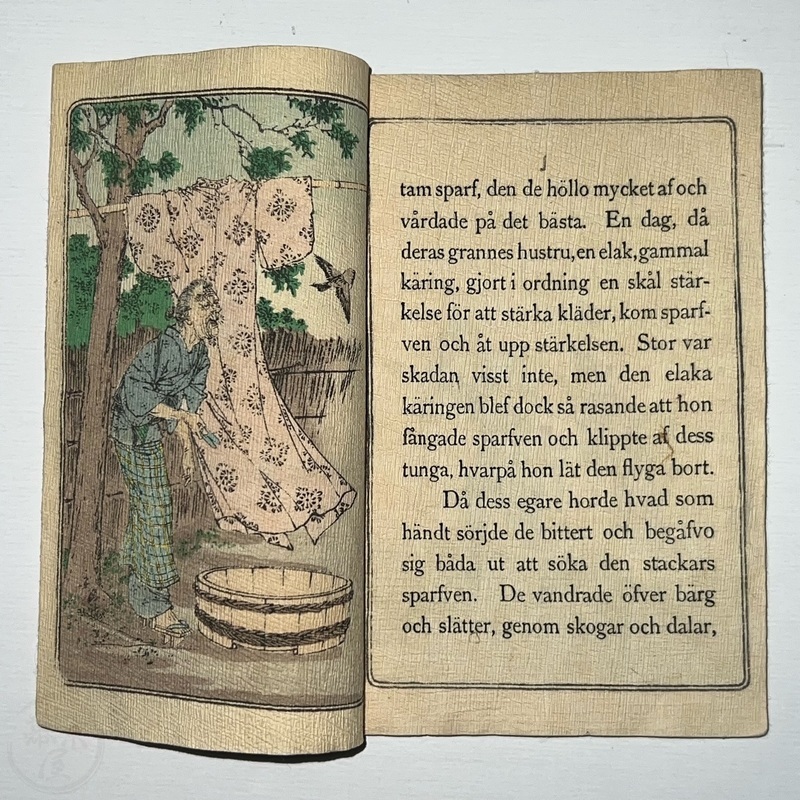 tam sparf, den de höllo mycket af och
vårdade på det bästa. En dag, då
deras grannes hustru, en elak, gammal
käring, gjort i ordning en skål stär-
kelse för att stärka kläder, kom sparf-
ven och åt upp stärkelsen. Stor var
skadan visst inte, men den elaka
käringen blef dock så rasande att hon
fångade sparfven och klippte af dess
tunga, hvarpå hon lät den flyga bort.
Då dess egare horde hvad som
händt sörjde de bittert och begåfvo
sig båda ut att söka den stackars
sparfven. De vandrade öfver bärg
och slätter, genom skogar och dalar,